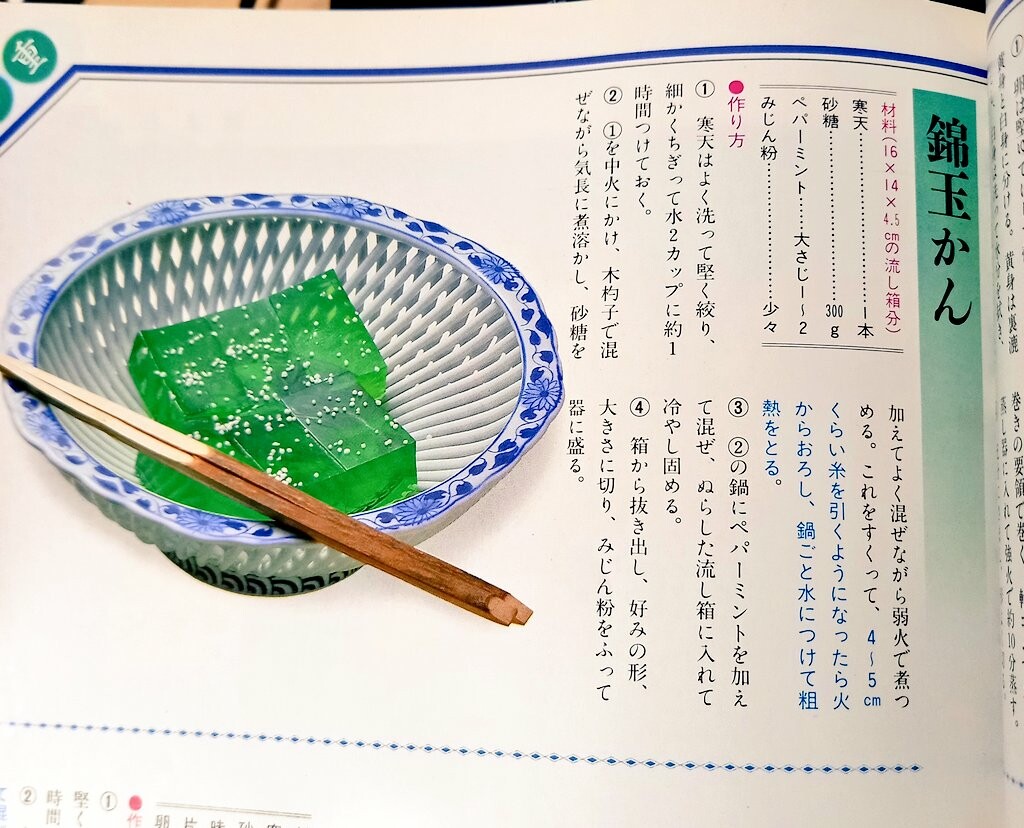 錦玉かん
材料(16×14×4.5cmの流し箱分)
寒天………………1本
砂糖………………300g
ペパーミント……大さじ1～2
みじん粉…………少々
●作り方
① 寒天はよく洗って堅く絞り、
細かくちぎって水2カップに約1
時間つけておく。
② ①を中火にかけ、木杓子で混
ぜながら気長に煮溶かし、砂糖を
加えてよく混ぜながら弱火で煮つ
める。これをすくって、4～5cm
くらい糸を引くようになったら火
からおろし、鍋ごと水につけて粗
熱をとる。
③ ②の鍋にペパーミントを加え
て混ぜ、ぬらした流し箱に入れて
冷やし固める。
④ 箱から抜き出し、好みの形、
大きさに切り、みじん粉をふって
器に盛る。
●作
①
堅く
②
時間